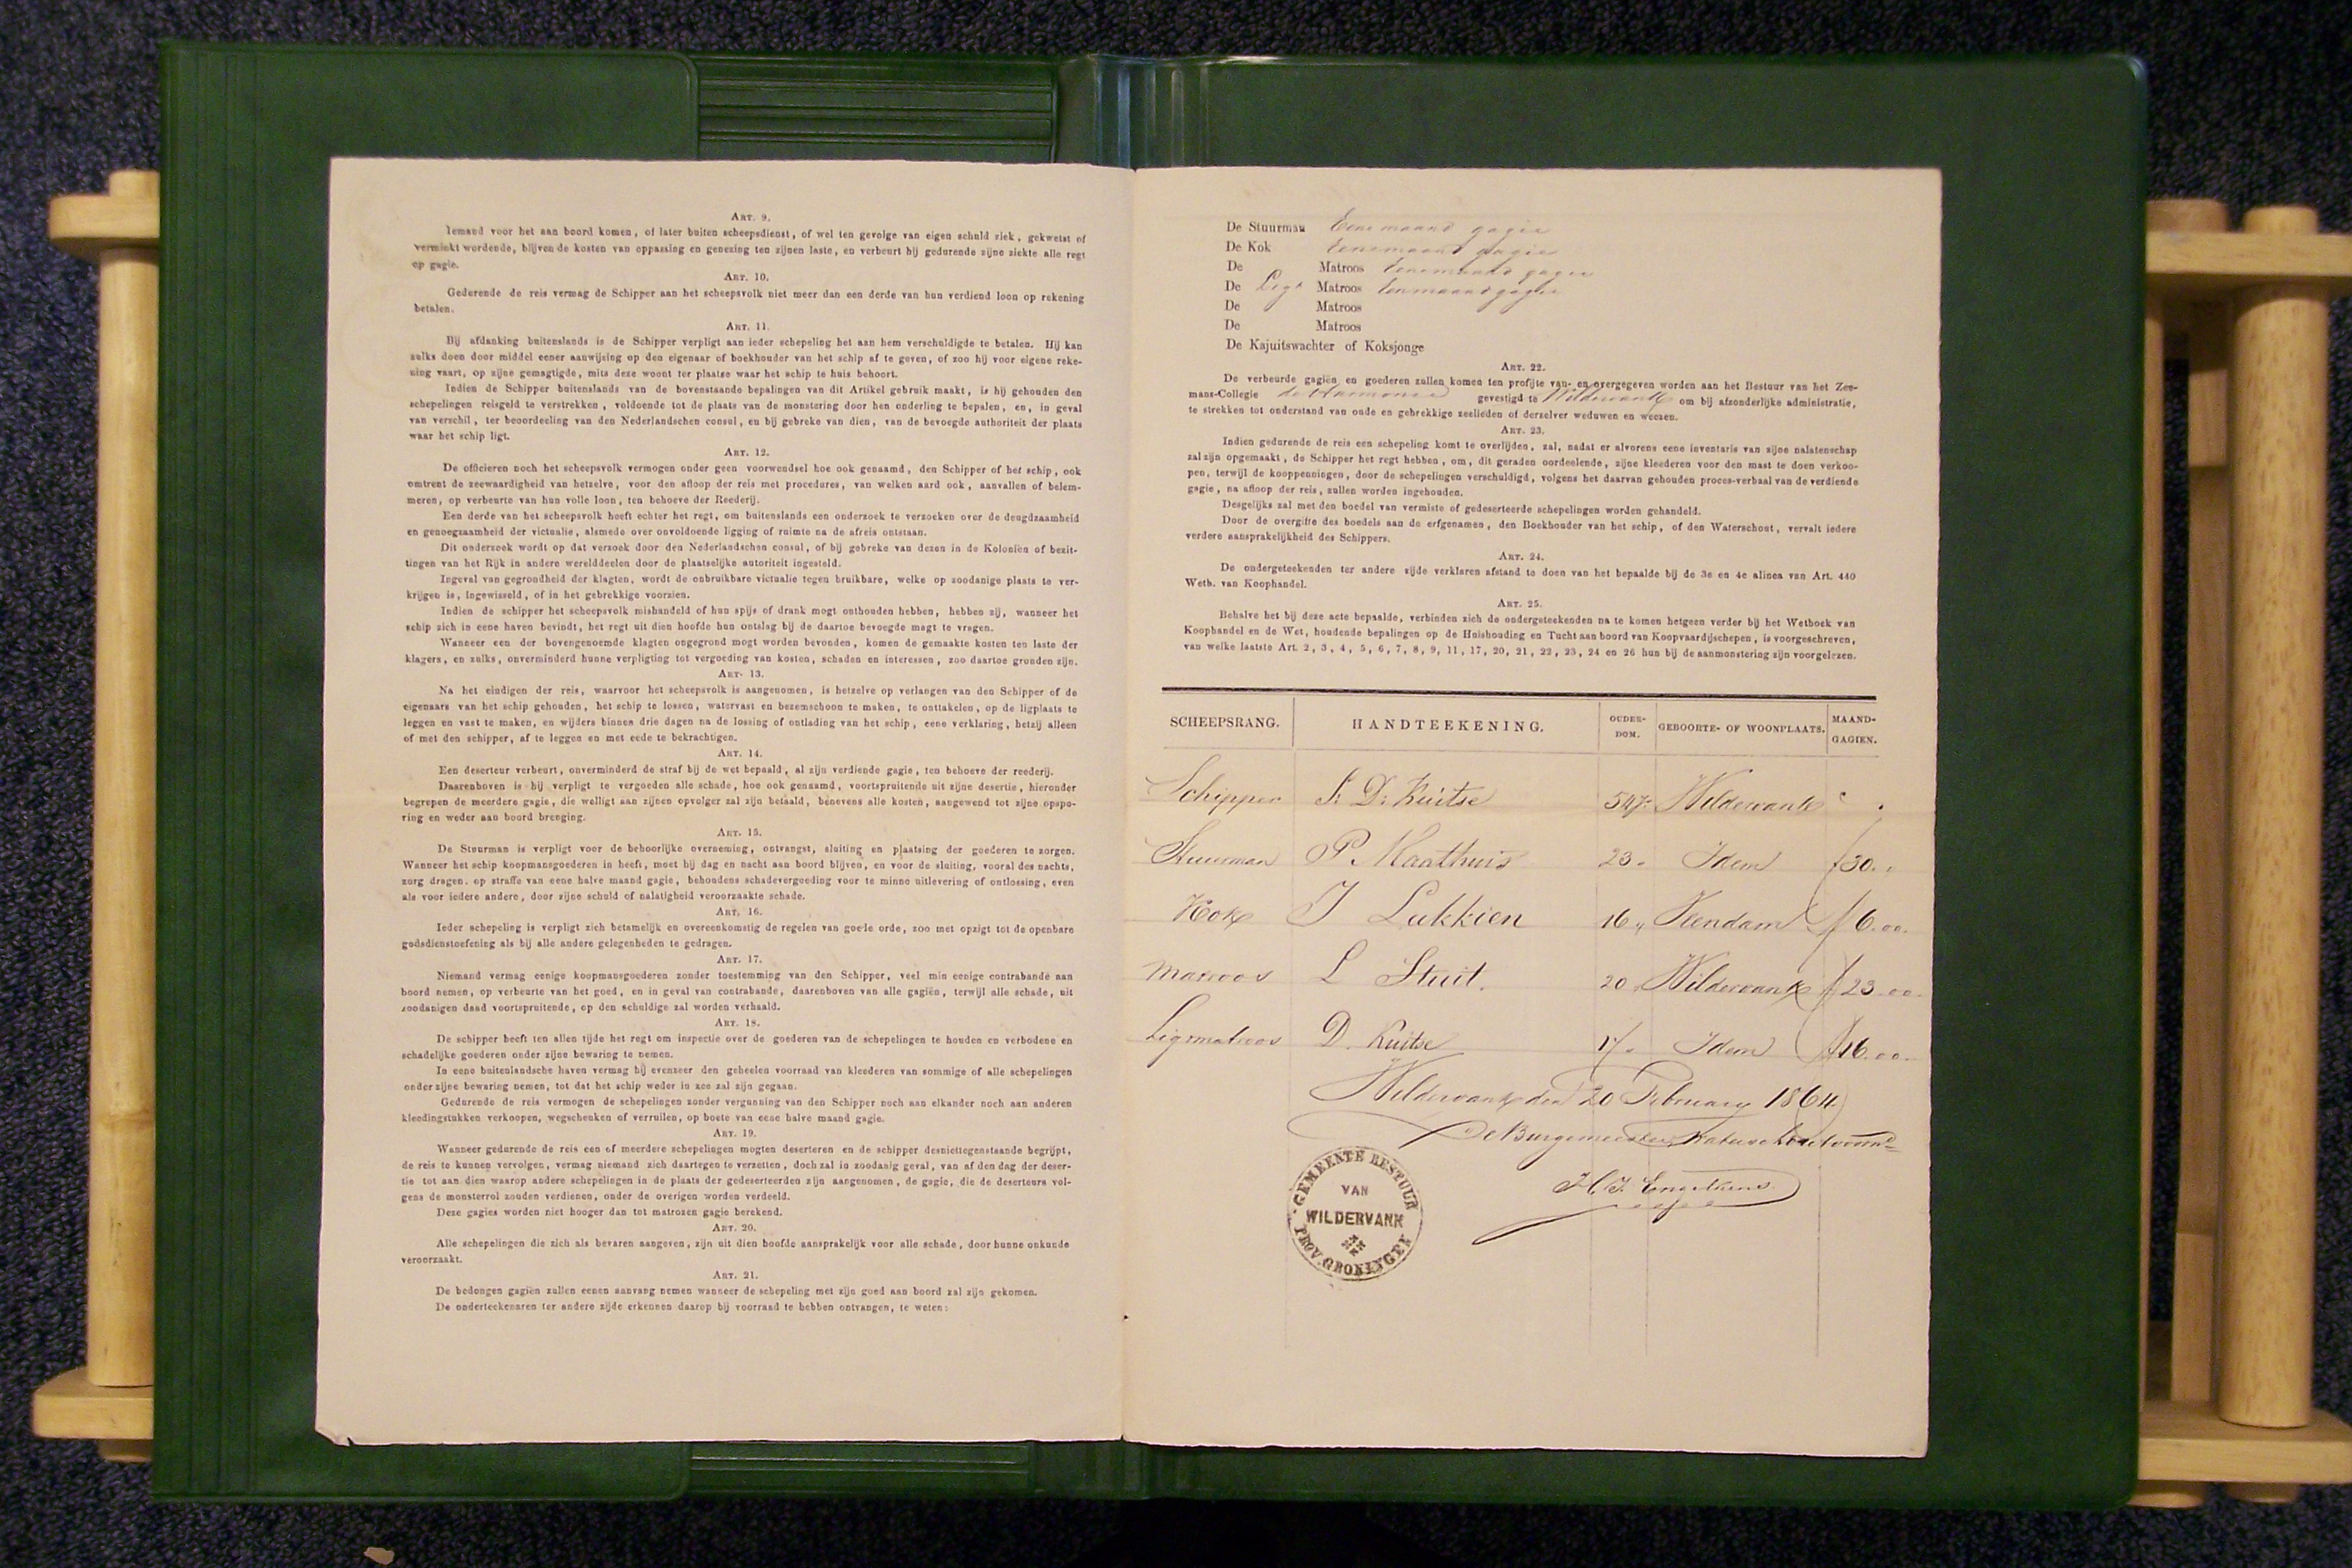 ART. 9.
Iemand voor het aan boord komen, of later buiten scheepsdienst, of wel ten gevolge van eigen schuld ziek, gekwetst of
verminkt wordende, blijven de kosten van oppassing en genezing ten zijnen laste, en verbeurt hij gedurende zijne ziekte alle regt
op gagie.
ART. 10.
Gedurende de reis vermag de Schipper aan het scheepsvolk niet meer dan een derde van hun verdiend loon op rekening
betalen.
ART. 11.
Bij afdanking buitenslands is de Schipper verpligt aan ieder schepeling het aan hem verschuldigde te betalen. Hij kan
zulks doen door middel eener aanwijzing op den eigenaar of boekhouder van het schip af te geven, of zoo hij voor eigene reke-
ning vaart, op zijne gemagtigde, mits deze woont ter plaatse waar het schip te huis behoort.
Indien de Schipper buitenslands van de bovenstaande bepalingen van dit Artikel gebruik maakt, is hij gehouden den
schepelingen reisgeld te verstrekken, voldoende tot de plaats van de monstering door hen onderling te bepalen, en, in geval
van verschil, ter beoordeeling van den Nederlandschen consul, en bij gebreke van dien, van de bevoegde authoriteit der plaats
waar het schip ligt.
ART. 12.
De officieren noch het scheepsvolk vermogen onder geen voorwendsel hoe ook genaamd, den Schipper of het schip, ook
omtrent de zeewaardigheid van hetzelve, voor den afloop der reis met procedures, van welken aard ook, aanvallen of belem-
meren, op verbeurte van hun volle loon, ten behoeve der Reederij.
Een derde van het scheepsvolk heeft echter het regt, om buitenslands een onderzoek te verzoeken over de deugdzaamheid
en genoegzaamheid der victualie, alsmede over onvoldoende ligging of ruimte na de afreis ontstaan.
Dit onderzoek wordt op dat verzoek door den Nederlandschen consul, of bij gebreke van dezen in de Koloniën of bezit-
tingen van het Rijk in andere werelddeelen door de plaatselijke autoriteit ingesteld.
Ingeval van gegrondheid der klagten, wordt de onbruikbare victualie tegen bruikbare, welke op zoodanige plaats te ver-
krijgen is, ingewisseld, of in het gebrekkige voorzien.
Indien de schipper het scheepsvolk mishandeld of hun spijs of drank mogt onthouden hebben, hebben zij, wanneer het
schip zich in eene haven bevindt, het regt uit dien hoofde hun ontslag bij de daartoe bevoegde magt te vragen.
Wanneer een der bovengenoemde klagten ongegrond mogt worden bevonden, komen de gemaakte kosten ten laste der
klagers, en zulks, onverminderd hunne verpligting tot vergoeding van kosten, schaden en interessen, zoo daartoe gronden zijn.
ART. 13.
Na het eindigen der reis, waarvoor het scheepsvolk is aangenomen, is hetzelve op verlangen van den Schipper of de
eigenaars van het schip gehouden, het schip te lossen, watervast en bezemschoon te maken, te onttakelen, op de ligplaats te
leggen en vast te maken, en wijders binnen drie dagen na de lossing of ontlading van het schip, eene verklaring, hetzij alleen
of met den schipper, af te leggen en met eede te bekrachtigen.
ART. 14.
Een deserteur verbeurt, onverminderd de straf bij de wet bepaald, al zijn verdiende gagie, ten behoeve der reederij.
Daarenboven is hij verpligt te vergoeden alle schade, hoe ook genaamd, voortspruitende uit zijne desertie, hieronder
begrepen de meerdere gagie, die welligt aan zijnen opvolger zal zijn betaald, benevens alle kosten, aangewend tot zijne opspo-
ring en weder aan boord brenging.
ART. 15.
De Stuurman is verpligt voor de behoorlijke overneming, ontvangst, sluiting en plaatsing der goederen te zorgen.
Wanneer het schip koopmansgoederen in heeft, moet hij dag en nacht aan boord blijven, en voor de sluiting, vooral des nachts,
zorg dragen, op straffe van eene halve maand gagie, behoudens schadevergoeding voor te minne uitlevering of ontlossing, even
als voor iedere andere, door zijne schuld of nalatigheid veroorzaakte schade.
ART. 16.
Ieder schepeling is verpligt zich betamelijk en overeenkomstig de regelen van goede orde, zoo met opzigt tot de openbare
godsdienstoefening als bij alle andere gelegenheden te gedragen.
ART. 17.
Niemand vermag eenige koopmansgoederen zonder toestemming van den Schipper, veel min eenige contrabande aan
boord nemen, op verbeurte van het goed, en in geval van contrabande, daarenboven van alle gagiën, terwijl alle schade, uit
zoodanigen daad voortspruitende, op den schuldige zal worden verhaald.
ART. 18.
De schipper heeft ten allen tijde het regt om inspectie over de goederen van de schepelingen te houden en verbodene en
schadelijke goederen onder zijne bewaring te nemen.
In eene buitenlandsche haven vermag hij evenzeer den geheelen voorraad van kleederen van sommige of alle schepelingen
onder zijne bewaring nemen, tot dat het schip weder in zee zal zijn gegaan.
Gedurende de reis vermogen de schepelingen zonder vergunning van den Schipper noch aan elkander noch aan anderen
kleedingstukken verkoopen, wegschenken of verruilen, op boete van eene halve maand gagie.
ART. 19.
Wanneer gedurende de reis een of meerdere schepelingen mogten deserteren en de schipper desniettegenstaande begrijpt,
de reis te kunnen vervolgen, vermag niemand zich daartegen te verzetten, doch zal in zoodanig geval, van af den dag der deser-
tie tot aan dien waarop andere schepelingen in de plaats der gedeserteerden zijn aangenomen, de gagie, die de deserteurs vol-
gens de monsterrol zouden verdienen, onder de overigen worden verdeeld.
Deze gagies worden niet hooger dan tot matrozen gagie berekend.
ART. 20.
Alle schepelingen die zich als bevaren aangeven, zijn uit dien hoofde aansprakelijk voor alle schade, door hunne onkunde
veroorzaakt.
ART. 21.
De bedongen gagiën zullen eenen aanvang nemen wanneer de schepeling met zijn goed aan boord zal zijn gekomen.
De onderteekenaren ter andere zijde erkennen daarop bij voorraad te hebben ontvangen, te weten:
De Stuurman Eene maand gagie
De Kok Eenemaand gagie
De Matroos Eenemaand gagie
De Ligt Matroos Eenmaand gagie
De Matroos
De Matroos
De Kajuitswachter of Koksjonge
ART. 22.
De verbeurde gagiën en goederen zullen komen ten profijte van- en overgegeven worden aan het Bestuur van het Zee-
mans-Collegie de Harmonie gevestigd te Wildervank om bij afzonderlijke administratie,
te strekken tot onderstand van oude en gebrekkige zeelieden of derzelver weduwen en weezen.
ART. 23.
Indien gedurende de reis een schepeling komt te overlijden, zal, nadat er alvorens eene inventaris van zijne nalatenschap
zal zijn opgemaakt, de Schipper het regt hebben, om, dit geraden oordeelende, zijne kleederen voor den mast te doen verkoo-
pen, terwijl de kooppenningen, door de schepelingen verschuldigd, volgens het daarvan gehouden proces-verbaal van de verdiende
gagie, na afloop der reis, zullen worden ingehouden.
Desgelijks zal met den boedel van vermiste of gedeserteerde schepelingen worden gehandeld.
Door de overgifte des boedels aan de erfgenamen, den Boekhouder van het schip, of den Waterschout, vervalt iedere
verdere aansprakelijkheid des Schippers.
ART. 24.
De ondergeteekenden ter andere zijde verklaren afstand te doen van het bepaalde bij de 3e en 4e alinea van Art. 440
Wetb. van Koophandel.
ART. 25.
Behalve het bij deze acte bepaalde, verbinden zich de ondergeteekenden na te komen hetgeen verder bij het Wetboek van
Koophandel en de Wet, houdende bepalingen op de Huishouding en Tucht aan boord van Koopvaardijschepen, is voorgeschreven,
van welke laatste Art. 2, 3, 4, 5, 6, 7, 8, 9, 11, 17, 20, 21, 22, 23, 24 en 26 hun bij de aanmonstering zijn voorgelezen.
SCHEEPSRANG. HANDTEEKENING. OUDER-DOM. GEBOORTE- OF WOONPLAATS. MAAND-GAGIEN.
Schipper S. D. Kuitse Wildervank
Stuurman P Maathuis 23 Idem f 30
Kok J Lukkien 16 Veendam f 6.00
Matroos L Stuit. 20 Wildervank f 23.00
Ligmatroos D. Kuitse 17 Idem f 16.00
Wildervank den 20 February 1864
De Burgemeester
H J Engelkens
GEMEENTE BESTUUR
VAN
WILDERVANK
PROV. GRONINGEN